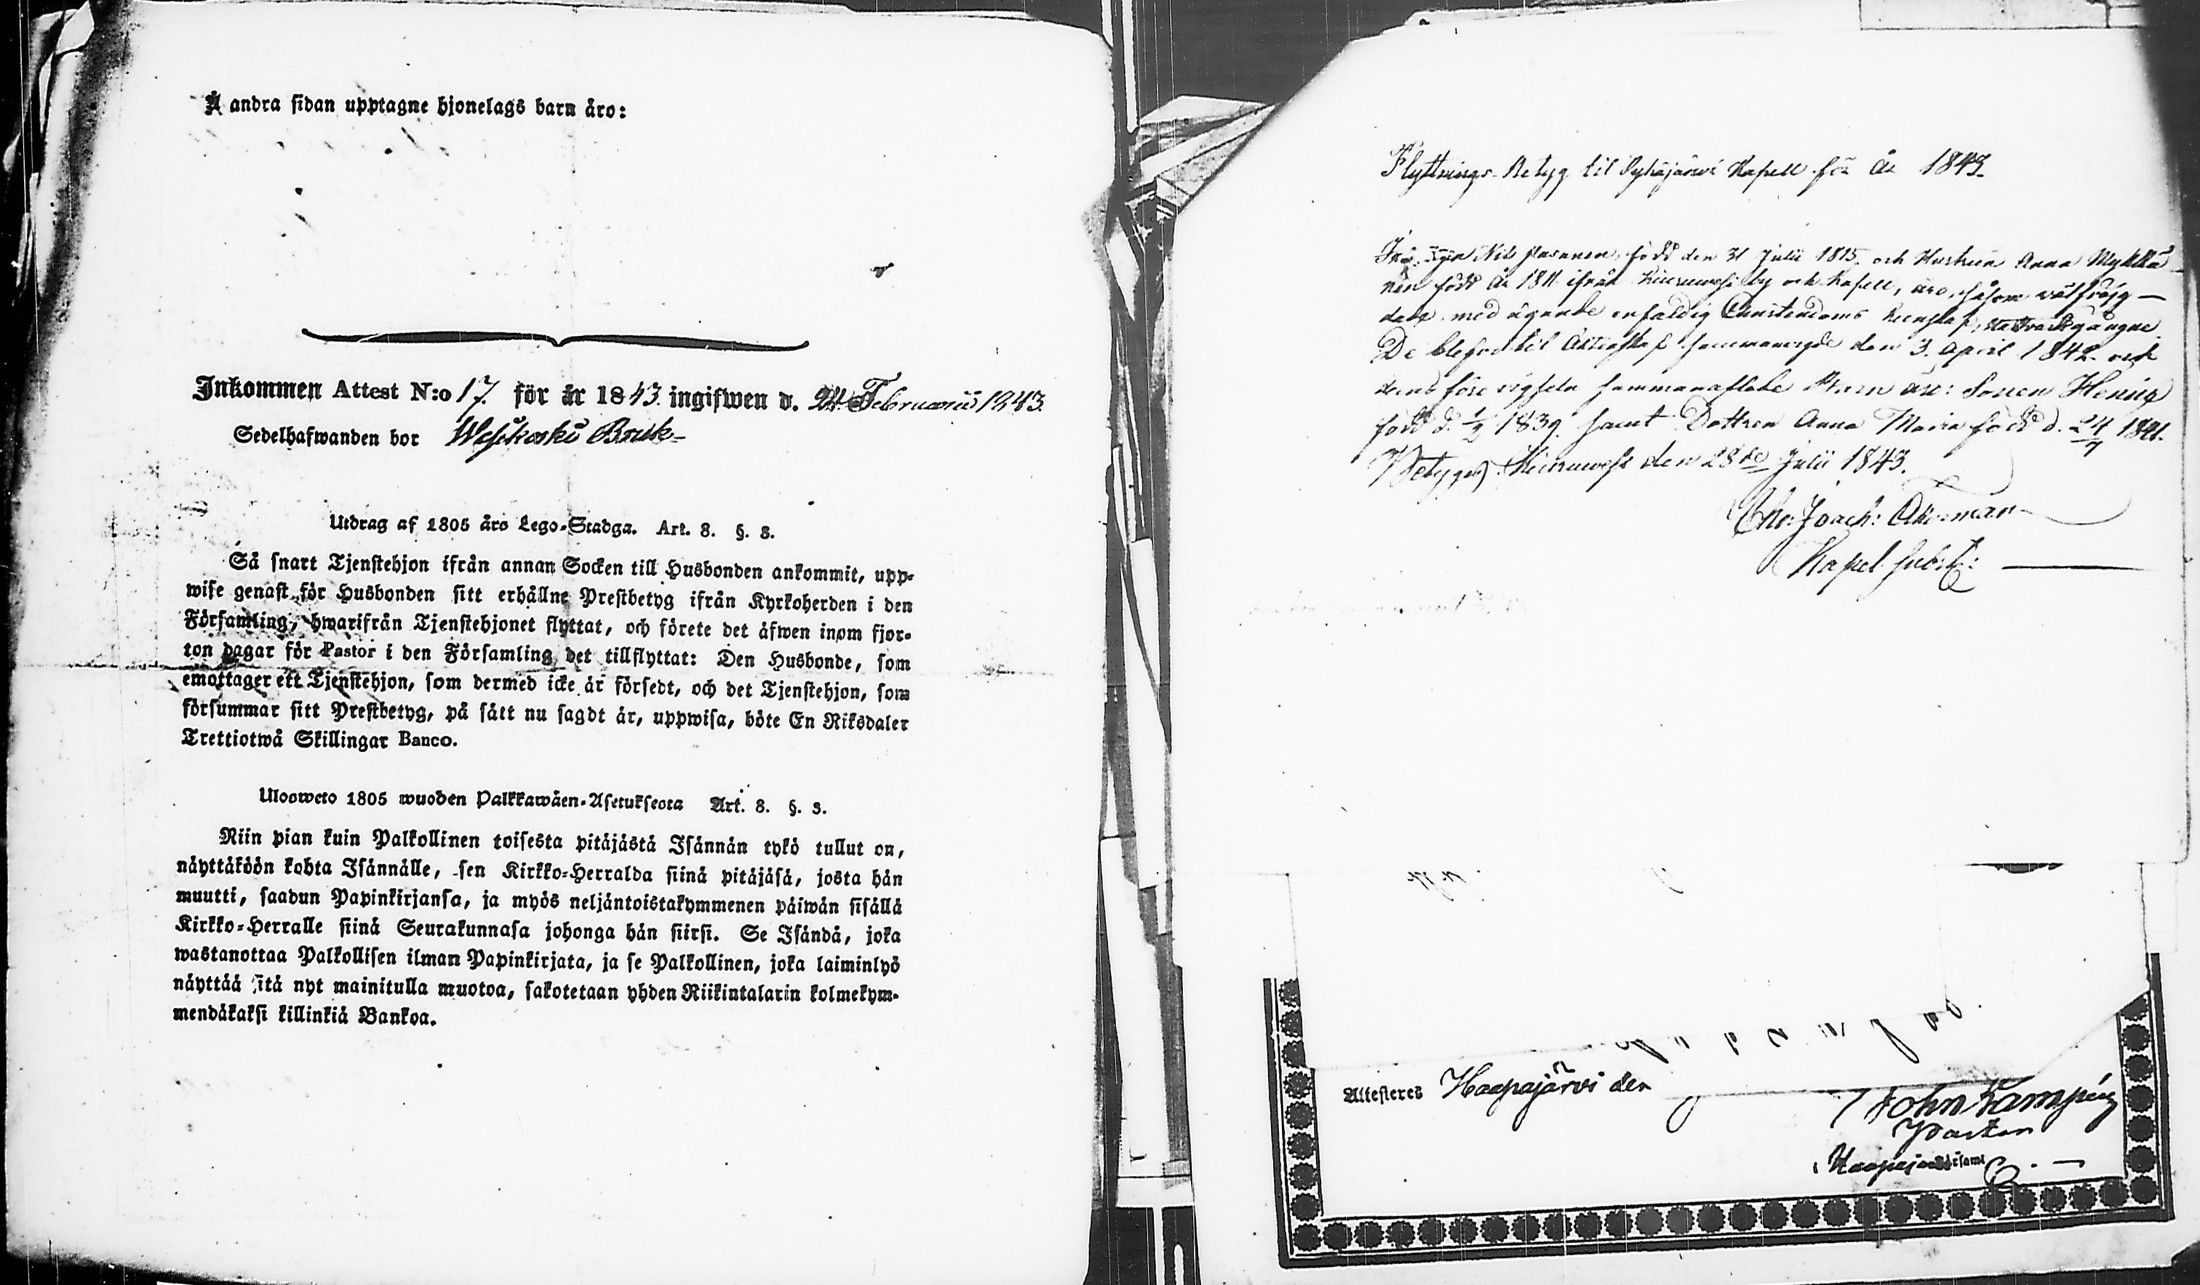 Å andra sidan upptagne hjonelags barn äro:
Inkommen Attest N:o 17. för år 1843. ingifwen d. 24. Februarii 1843.
Sedelhafwanden bor Wesikoski Bruk
Utdrag af 1805 års Lego-Stadga. Art. 8. §. 3.
Så snart Tjenstehjon ifrån annan Socken till Husbonden ankommit, upp-
wise genast för Husbonden sitt erhållne Prestbetyg ifrån Kyrkoherden i den
Församling, hwarifrån Tjenstehjonet flyttat, och förete det äfwen inom fjor-
ton dagar för Pastor i den Församling det tillflyttat: Den Husbonde, som
emottager ett Tjenstehjon, som dermed icke är försedt, och det Tjenstehjon, som
försummar sitt Prestbetyg, på sätt nu sagdt är, uppwisa, böte En Riksdaler
Trettiotwå Skillingar Banco.
Ulosweto 1805 wuoden Palkkawäen-Asetuksesta Art. 8. §. 3.
Niin pian kuin Palkollinen toisesta pitäjästä Isännän tykö tullut on,
näyttäköön kohta Isännälle, sen Kirkko-Herralda siinä pitäjäsä, josta hän
muutti, saadun Papinkirjansa, ja myös neljäntoistakymmenen päiwän sisällä
Kirkko-Herralle siinä Seurakunnasa johonga hän siirsi. Se Isändä, joka
wastanottaa Palkollisen ilman Papinkirjata, ja se Palkollinen, joka laiminlyö
näyttää sitä nyt mainitulla muotoa, sakotetaan yhden Riikintalarin kolmekym-
mendäkaksi killinkiä Bankoa.
Flyttnings-Betyg til Pyhäjärwi Kapell för År 1843.
Nils Hasanen, född den 31 Julii 1815. och Hustrun Anna Mykkä-
nen född År 1811. ifrån Kiuruwesi by och Kapell, äro, såsom wälfräjg-
dade med ägande enfaldig Christendoms kunskap, Nattwardsgångne.
De blefvo til Äktenskap sammanwigde den 3. April 1842. och
deras före wigseln sammanaflade Barn äro: Sonen Henrig
född d. 1/2 1839. samt Dottren Anna Maria född d. 24/7 1841.
Betygas Kiuruwesi den 28de Julii 1843.
Joach: Akerman
Kapel. subst:
Attesteres Haapajärwi den
John Lampén
Pastor
i Haapajärwi församl.